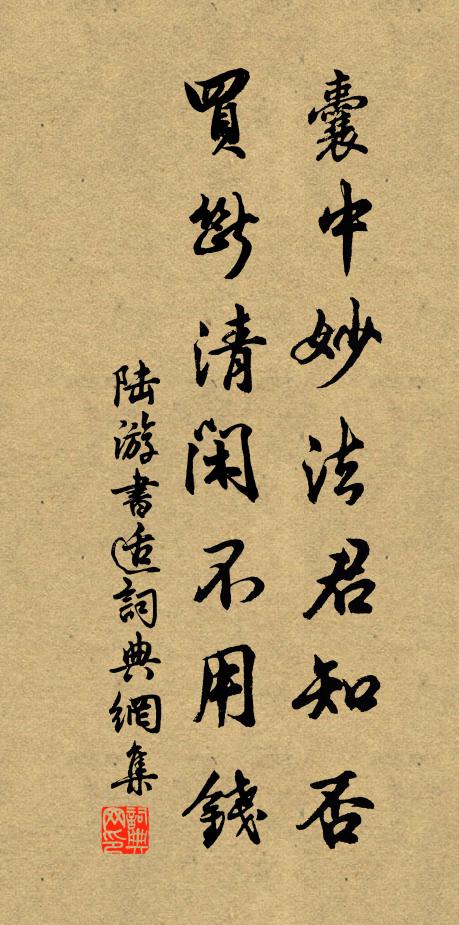 囊中妙法君知否
買斷清閑不用錢
陸游書适詞典網集
詞典網印